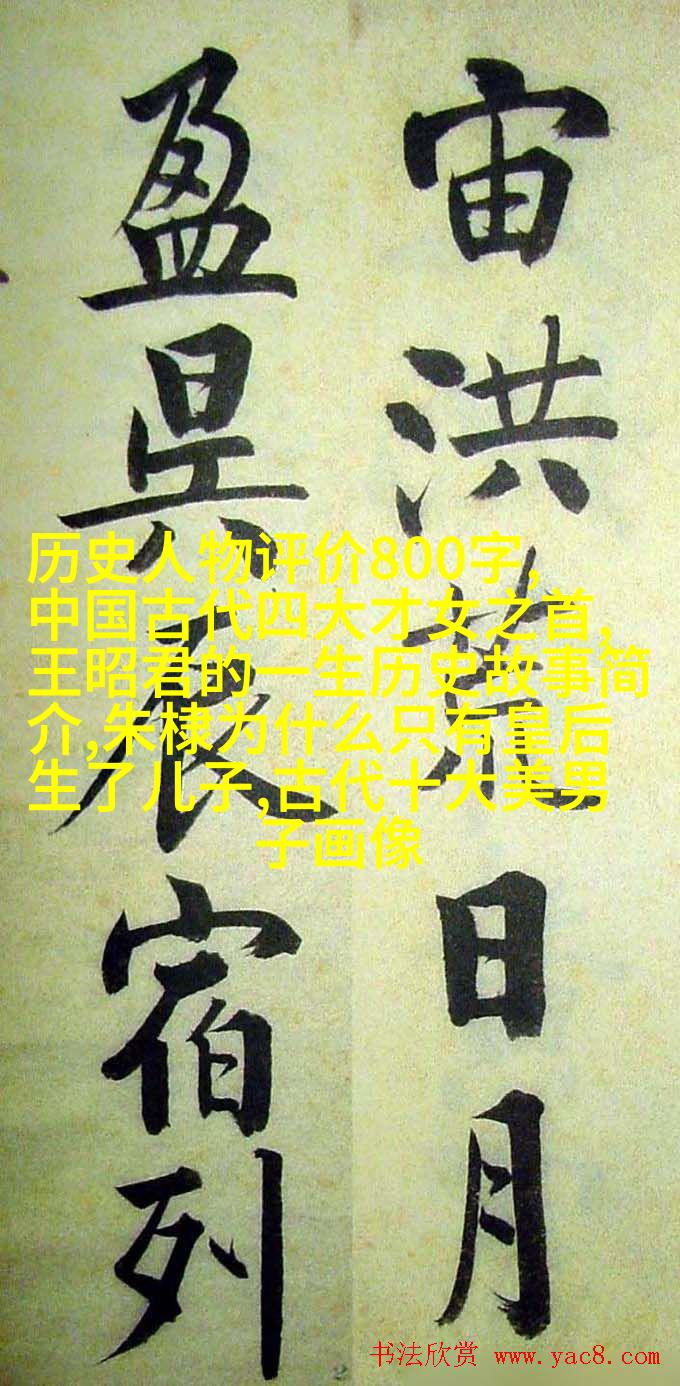 宙洪荒日月
盈昃辰宿列
历史人物评价800字,
中国古代四大才女之首,
王昭君的一生历史故事简
介,朱棣为什么只有皇后
生了儿子,古代十大美男
子画像
书法欣赏 www.yac8.com